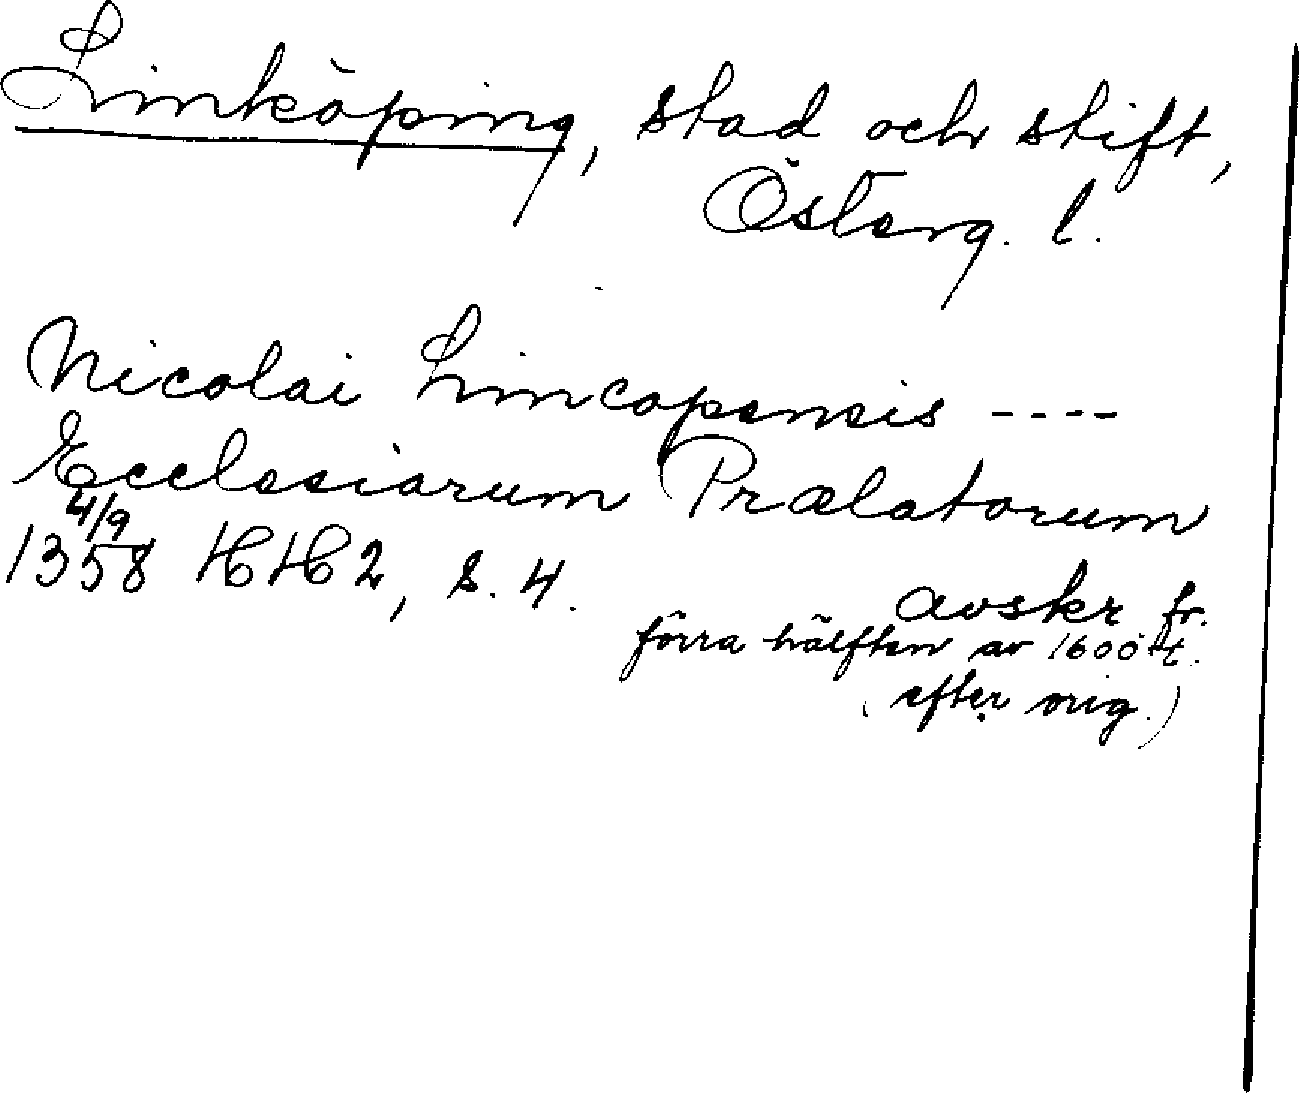 Linköping, stad och stift,
Österg. l.
Nicolai Lincopensis ----
Ecclesiarum Prælatorum
4/9
1358 HH2, s. 4.
avskr fr.
förra hälften av 1600 t.
(efter orig.)